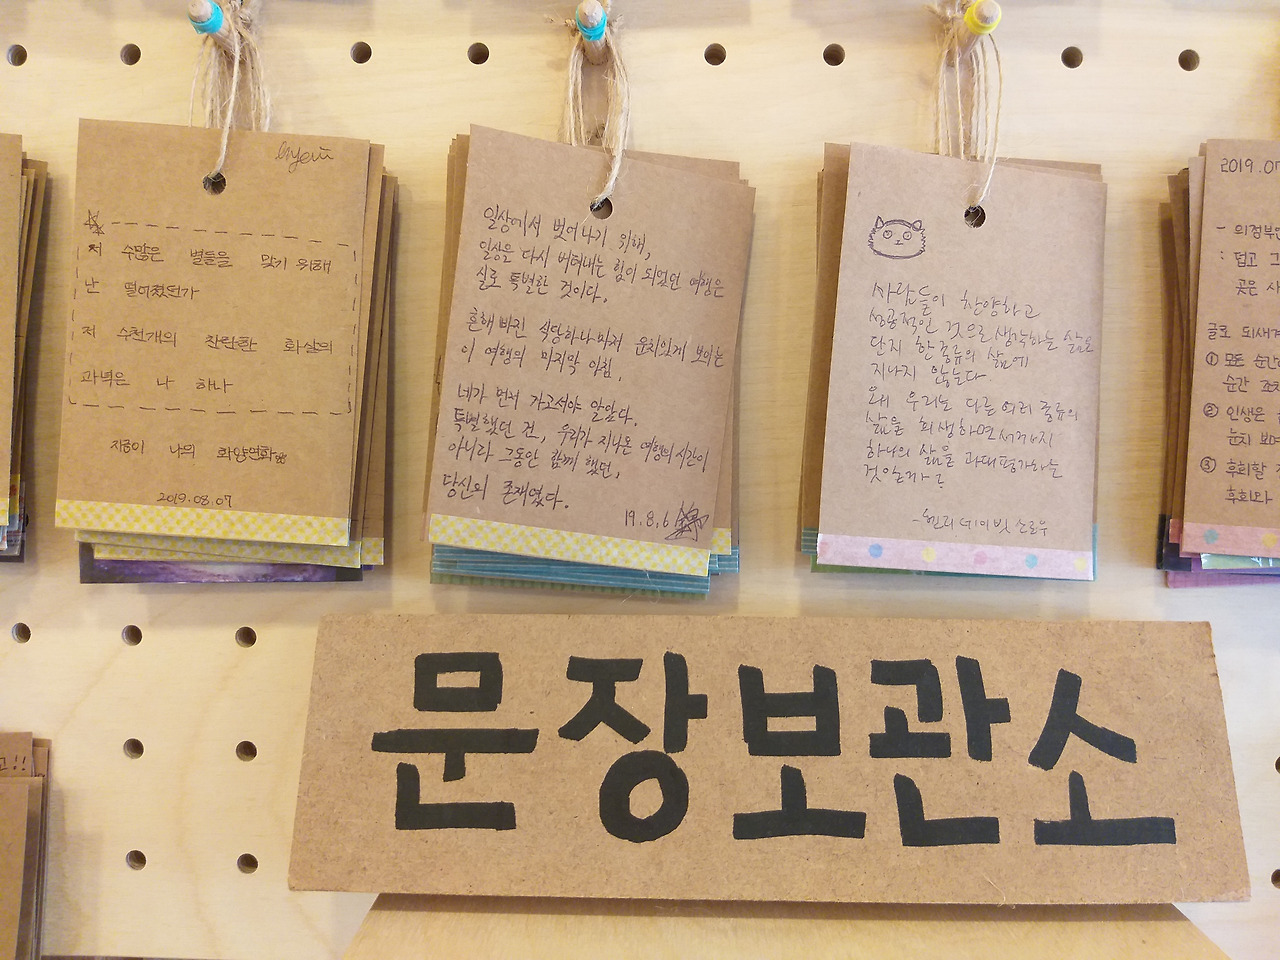 저 수많은 별들을 맞기 위해
난 떨어졌던가
저 수천개의 찬란한 화살의
과녁은 나 하나
지금이 나의 화양연화
2019.08.07
일상에서 벗어나기 위해,
일상을 다시 버텨내는 힘이 되었던 여행은
실로 특별한 것이다.
흔해 빠진 식당하나마저 운치있게 보이는
이 여행의 마지막 아침.
네가 먼저 가고서야 알았다.
특별했던 건, 우리가 지나온 여행의 시간이
아니라 그동안 함께 했던,
당신의 존재였다.
19.8.6
사람들이 찬양하고
성공적인 것으로 생각하는 삶은
단지 한 종류의 삶에
지나지 않는다.
왜 우리는 다른 여러 종류의
삶을 희생하면서까지
하나의 삶을 과대평가하는
것일까?
-헨리 데이빗 소로우
2019.07
- 의정부
: 덥고 그
곳은 사
글로 되새겨
① 모든 순간
순간 조차
② 인생은
눈치 보며
③ 후회할
후회와
고!!
문장보관소